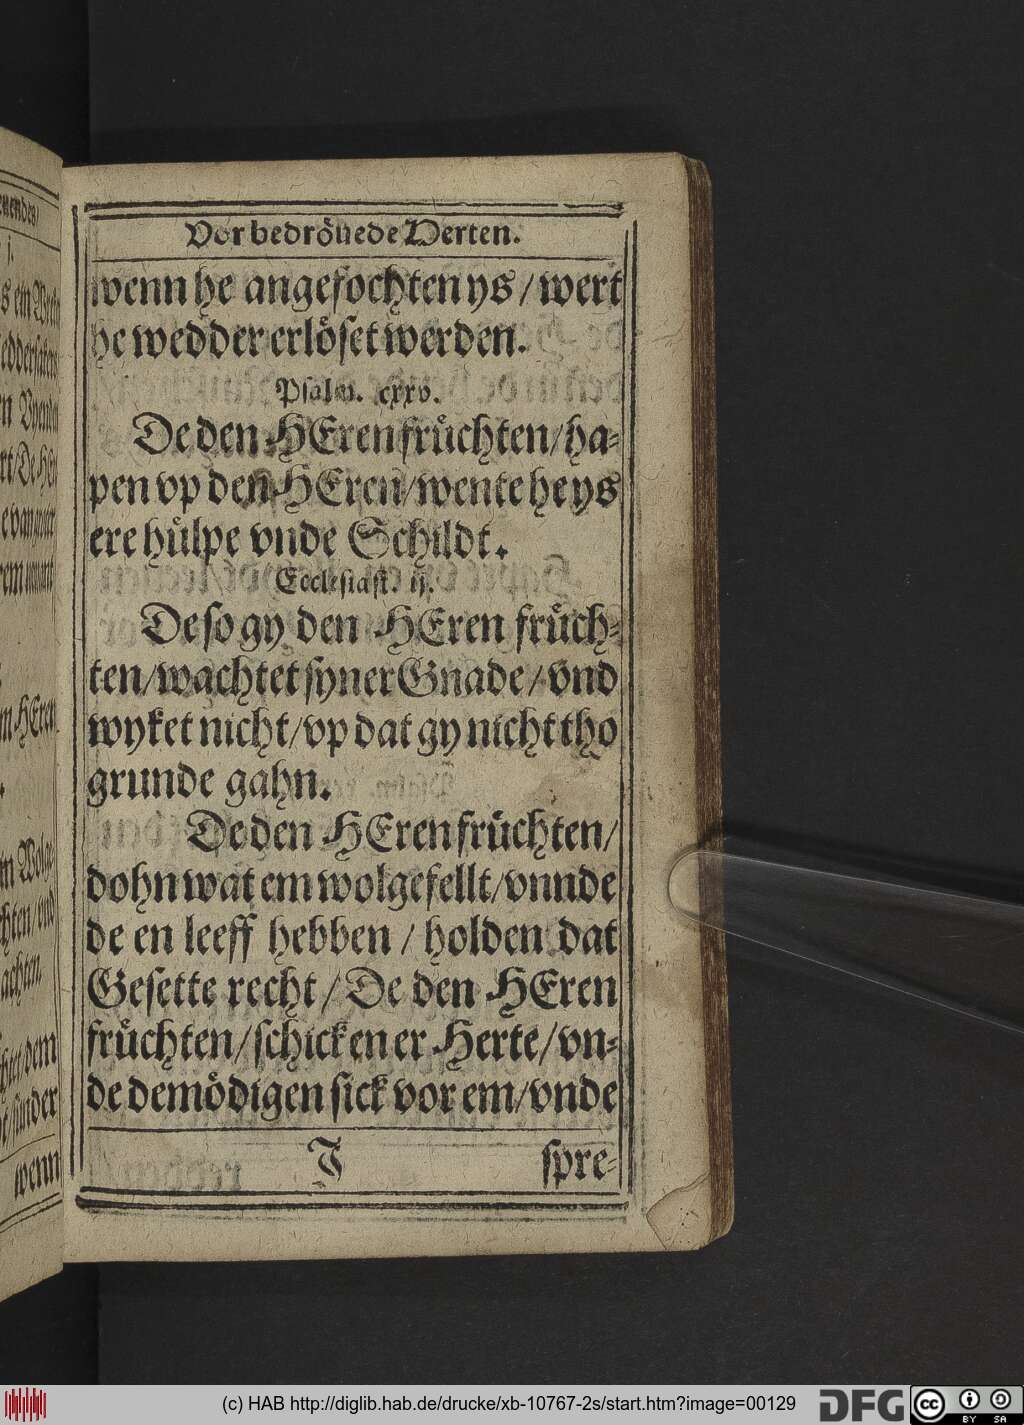 Vor bedröuede Herten.
wenn he angefochten ys / wert
he wedder erlöset werden.
Psalm. cxxv.
De den HEren früchten / ha-
pen vp den HEren / wente he ys
ere hülpe vnde Schildt.
Ecclesiast. ij.
De so gy den HEren früch-
ten / wachtet syner Gnade / vnd
wyket nicht / vp dat gy nicht tho
grunde gahn.
De den HEren früchten /
dohn wat em wolgefellt / vnnde
de en leeff hebben / holden dat
Gesette recht / De den HEren
früchten / schicken er Herte / vn-
de demödigen sick vor em / vnde
J spre-
wenn
(c) HAB http://diglib.hab.de/drucke/xb-10767-2s/start.htm?image=00129
DFG
cc
BY SA